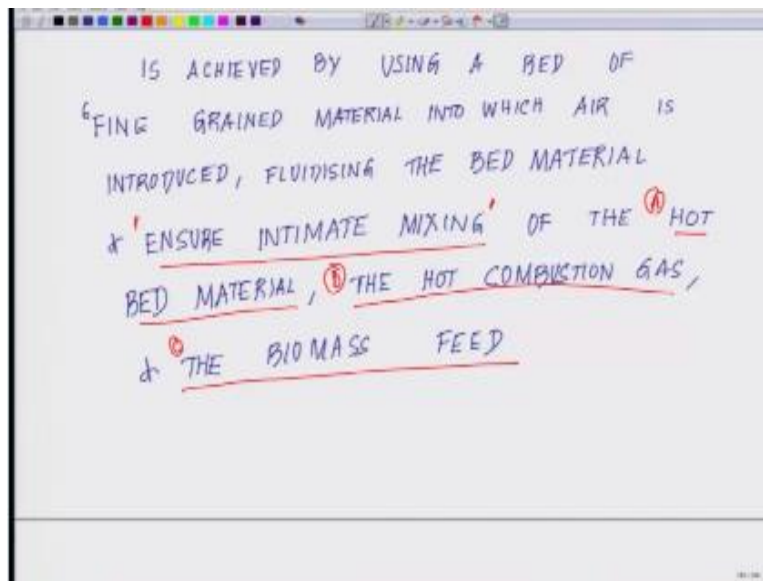 IS ACHIEVED BY USING A BED OF
FINE GRAINED MATERIAL INTO WHICH AIR IS
INTRODUCED, FLUIDISING THE BED MATERIAL
& 'ENSURE INTIMATE MIXING' OF THE Ⓐ HOT
BED MATERIAL, Ⓑ THE HOT COMBUSTION GAS,
& Ⓒ THE BIOMASS FEED